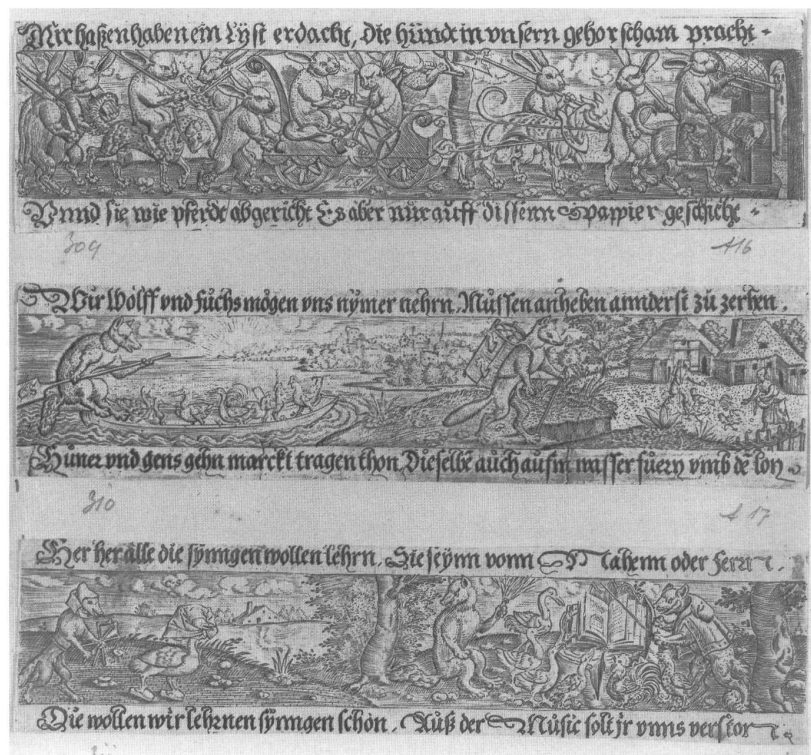 Wir haßen haben ein Lÿst erdacht, die hündt in vnsern gehorscham pracht.
Vnnd sie wie pferdt abgericht Es aber nur auff dissenn Pappier geschicht.
309 A16
Wir Wolff vnd fuchs mögen vns nÿmer nehrn. Mussen anheben annderst zü zerhen.
Hüner vnd gens gehn marckt tragen thon Dieselbē aüch aufm wasser füern vmb dē lon
310 A 17
Her her alle die sÿnngen wollen lehrn. Sie seÿnn vonn Nahenn oder Ferrn.
Die wollen wir lehrnen sÿnngen schön. Auß der Music solt jr vnns verston